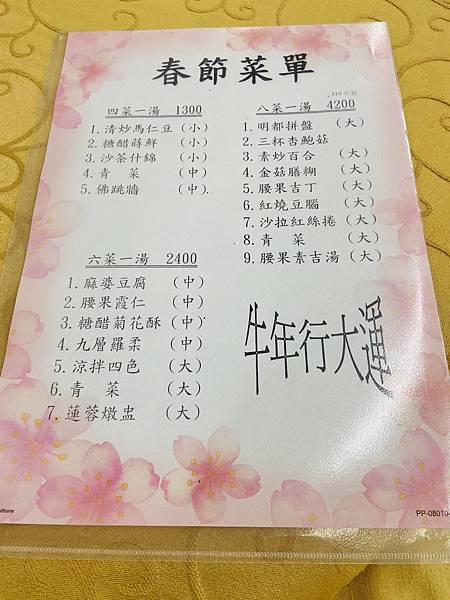 春節菜單
110年製
四菜一湯 1300
1. 清炒馬仁豆（小）
2. 糖醋蒔鮮（小）
3. 沙茶什錦（小）
4. 青　菜（中）
5. 佛跳牆（中）
六菜一湯 2400
1. 麻婆豆腐（中）
2. 腰果霞仁（中）
3. 糖醋菊花酥（中）
4. 九層羅柔（中）
5. 涼拌四色（大）
6. 青　菜（大）
7. 蓮蓉燉盅（大）
八菜一湯 4200
1. 明都拼盤（大）
2. 三杯杏鮑菇
3. 素炒百合（大）
4. 金菇膳糊（大）
5. 腰果吉丁（大）
6. 紅燒豆腦（大）
7. 沙拉紅絲捲（大）
8. 青　菜（大）
9. 腰果素吉湯（大）
牛年行大運
PP-08010-